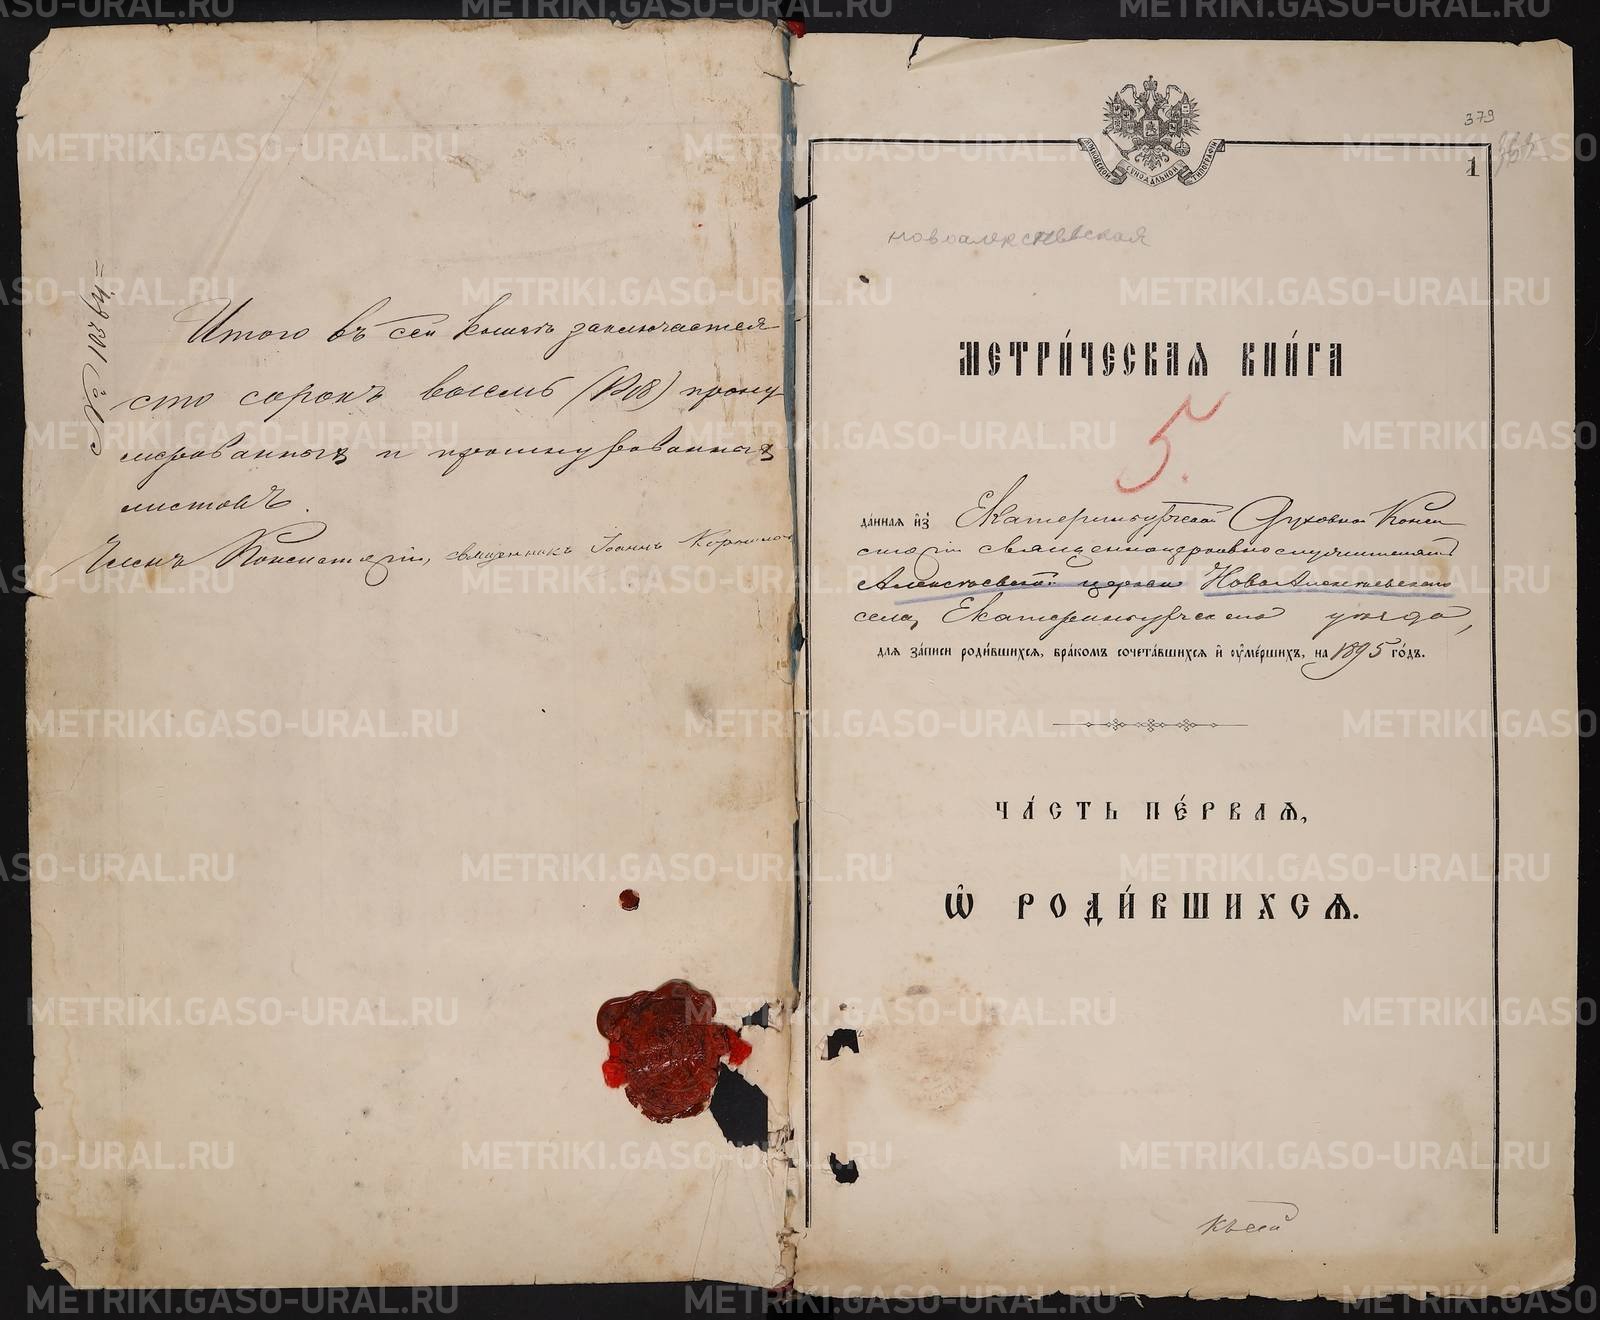 Итого въ сей книгѣ заключается
сто сорокъ восемь (148) прону
мерованныхъ и прошнурованныхъ
листовъ.
Членъ Консисторіи, священникъ Іоаннъ
379
1
МОСКОВСКОЙ СѴНОДАЛЬНОЙ ТИПОГРАФІИ
новоалексеевская
МЕТРИ́ЧЕСКАЯ КНИ́ГА
5.
да́нная и҆з̾ Екатеринбургской Духовной Конси
сторіи священноцерковнослужителямъ
Алексѣевской церкви НовоАлексѣевскаго
села, Екатеринбургскаго уѣзда,
для за́писи роди́вшихся, бра́комъ сочета́вшихся и҆ ᲂу҆ме́ршихъ, на 1895 го́дъ.
ЧА́СТЬ ПЕ́РВАЯ,
Ѡ҆ РОДИ́ВШИХСЯ.
METRIKI.GASO-URAL.RU